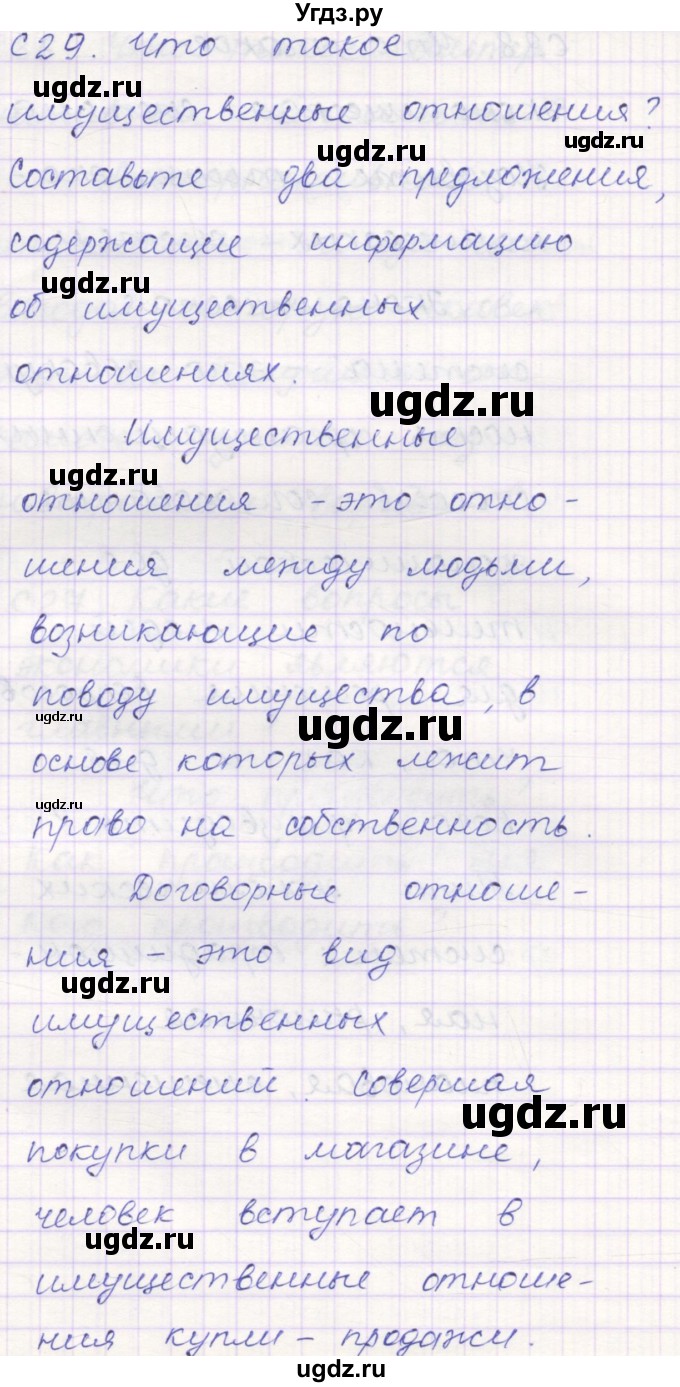 Угдз.ру
С29. Что такое
имущественные отношения?
Составьте два предложения,
содержащие информацию
об имущественных
отношениях.
Имущественные
отношения - это отно-
шения между людьми,
возникающие по
поводу имущества, в
основе которых лежит
право на собственность.
Договорные отноше-
ния - это вид
имущественных
отношений. Совершая
покупки в магазине,
человек вступает в
имущественные отноше-
ния купли - продажи.
ugdz.ru
ugdz.ru
ugdz.ru
ugdz.ru
ugdz.ru
ugdz.ru
ugdz.ru
ugdz.ru
ugdz.ru
ugdz.ru
ugdz.ru
ugdz.ru
ugdz.ru